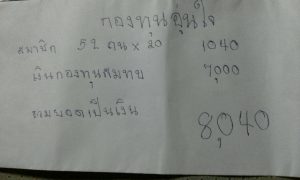 กองทุนอุ่นใจ
สมาชิก 52 คน × 20 1040
เงินกองทุนสมทบ 7,000
รวมยอดเป็นเงิน 8,040